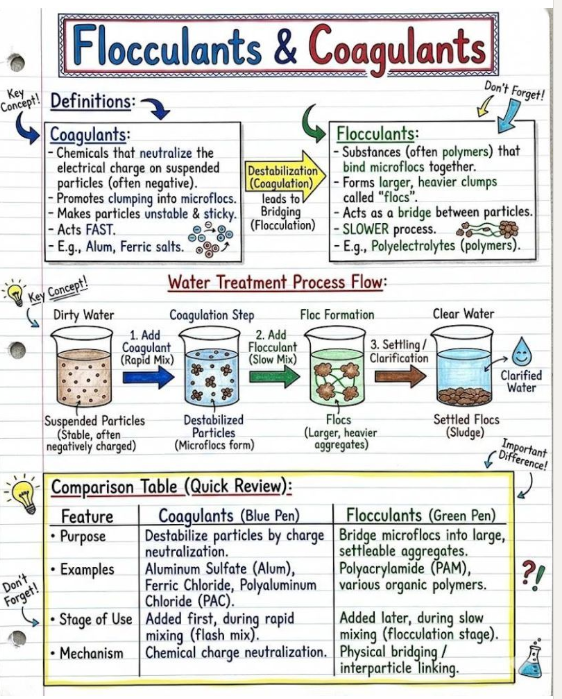 Flocculants & Coagulants
Key
Concept!
Definitions:
Don't Forget!
Coagulants:
- Chemicals that neutralize the
electrical charge on suspended
particles (often negative).
- Promotes clumping into microflocs.
- Makes particles unstable & sticky.
- Acts FAST.
- E.g., Alum, Ferric salts.
Destabilization
(Coagulation)
leads to
Bridging
(Flocculation)
Flocculants:
- Substances (often polymers) that
bind microflocs together.
- Forms larger, heavier clumps
called "flocs".
- Acts as a bridge between particles.
- SLOWER process.
- E.g., Polyelectrolytes (polymers).
Water Treatment Process Flow:
Key Concept!
Dirty Water
Suspended Particles
(Stable, often
negatively charged)
1. Add
Coagulant
(Rapid Mix)
Coagulation Step
Destabilized
Particles
(Microflocs form)
2. Add
Flocculant
(Slow Mix)
Floc Formation
Flocs
(Larger, heavier
aggregates)
3. Settling /
Clarification
Clear Water
Clarified
Water
Settled Flocs
(Sludge)
Important
Difference!
Comparison Table (Quick Review):
Feature
Coagulants (Blue Pen)
Flocculants (Green Pen)
• Purpose
Destabilize particles by charge
neutralization.
Bridge microflocs into large,
settleable aggregates.
• Examples
Aluminum Sulfate (Alum),
Ferric Chloride, Polyaluminum
Chloride (PAC).
Polyacrylamide (PAM),
various organic polymers.
?!
Don't
Forget!
• Stage of Use
Added first, during rapid
mixing (flash mix).
Added later, during slow
mixing (flocculation stage).
• Mechanism
Chemical charge neutralization.
Physical bridging /
interparticle linking.